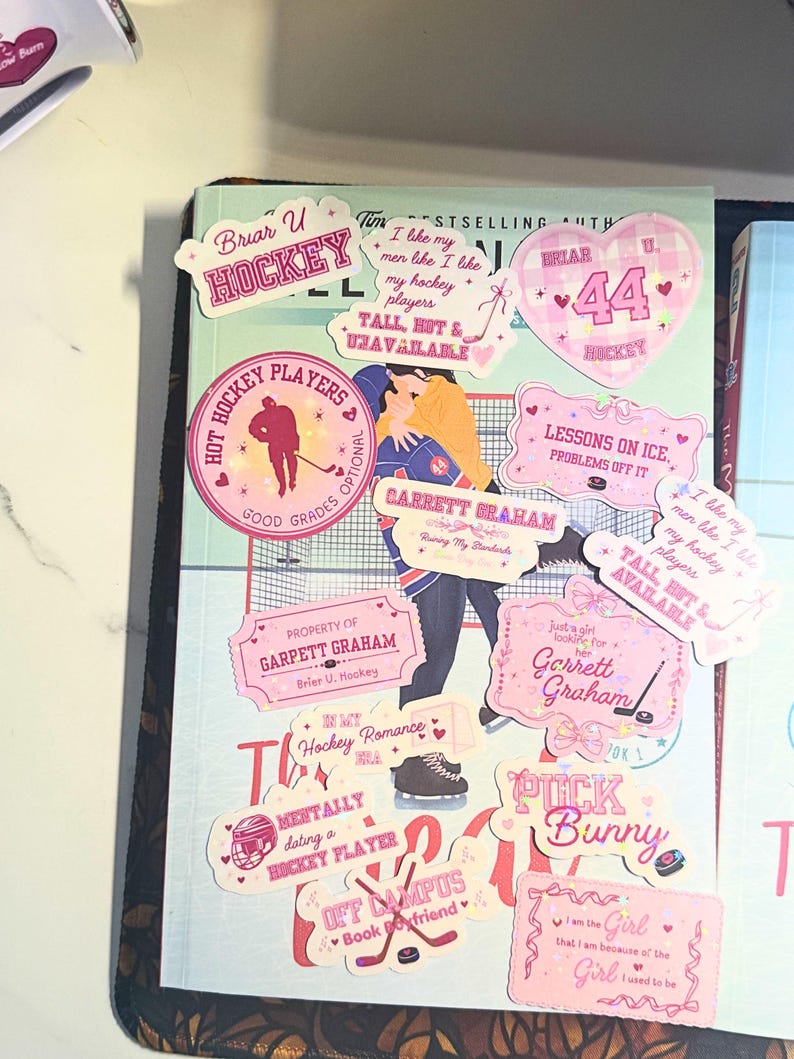 low Burn
Time BESTSELLING AUTHO
Briar U
HOCKEY
I like my
men like I like
my hockey
players
TALL, HOT &
UNAVAILABLE
BRIAR U.
44
HOCKEY
HOT HOCKEY PLAYERS
GOOD GRADES OPTIONAL
44
LESSONS ON ICE,
PROBLEMS OFF IT
GARRETT GRAHAM
Ruining My Standards
Since Day One
I like my
men like I like
my hockey
players
TALL, HOT &
AVAILABLE
PROPERTY OF
GARRETT GRAHAM
Brier U. Hockey
just a girl
looking for
her
Garrett
Graham
OOK 1
IN MY
Hockey Romance
ERA
Th
PUCK
Bunny
MENTALLY
dating a
HOCKEY PLAYER
OFF CAMPUS
Book Boyfriend
I am the Girl
that I am because of the
Girl I used to be
The M
T